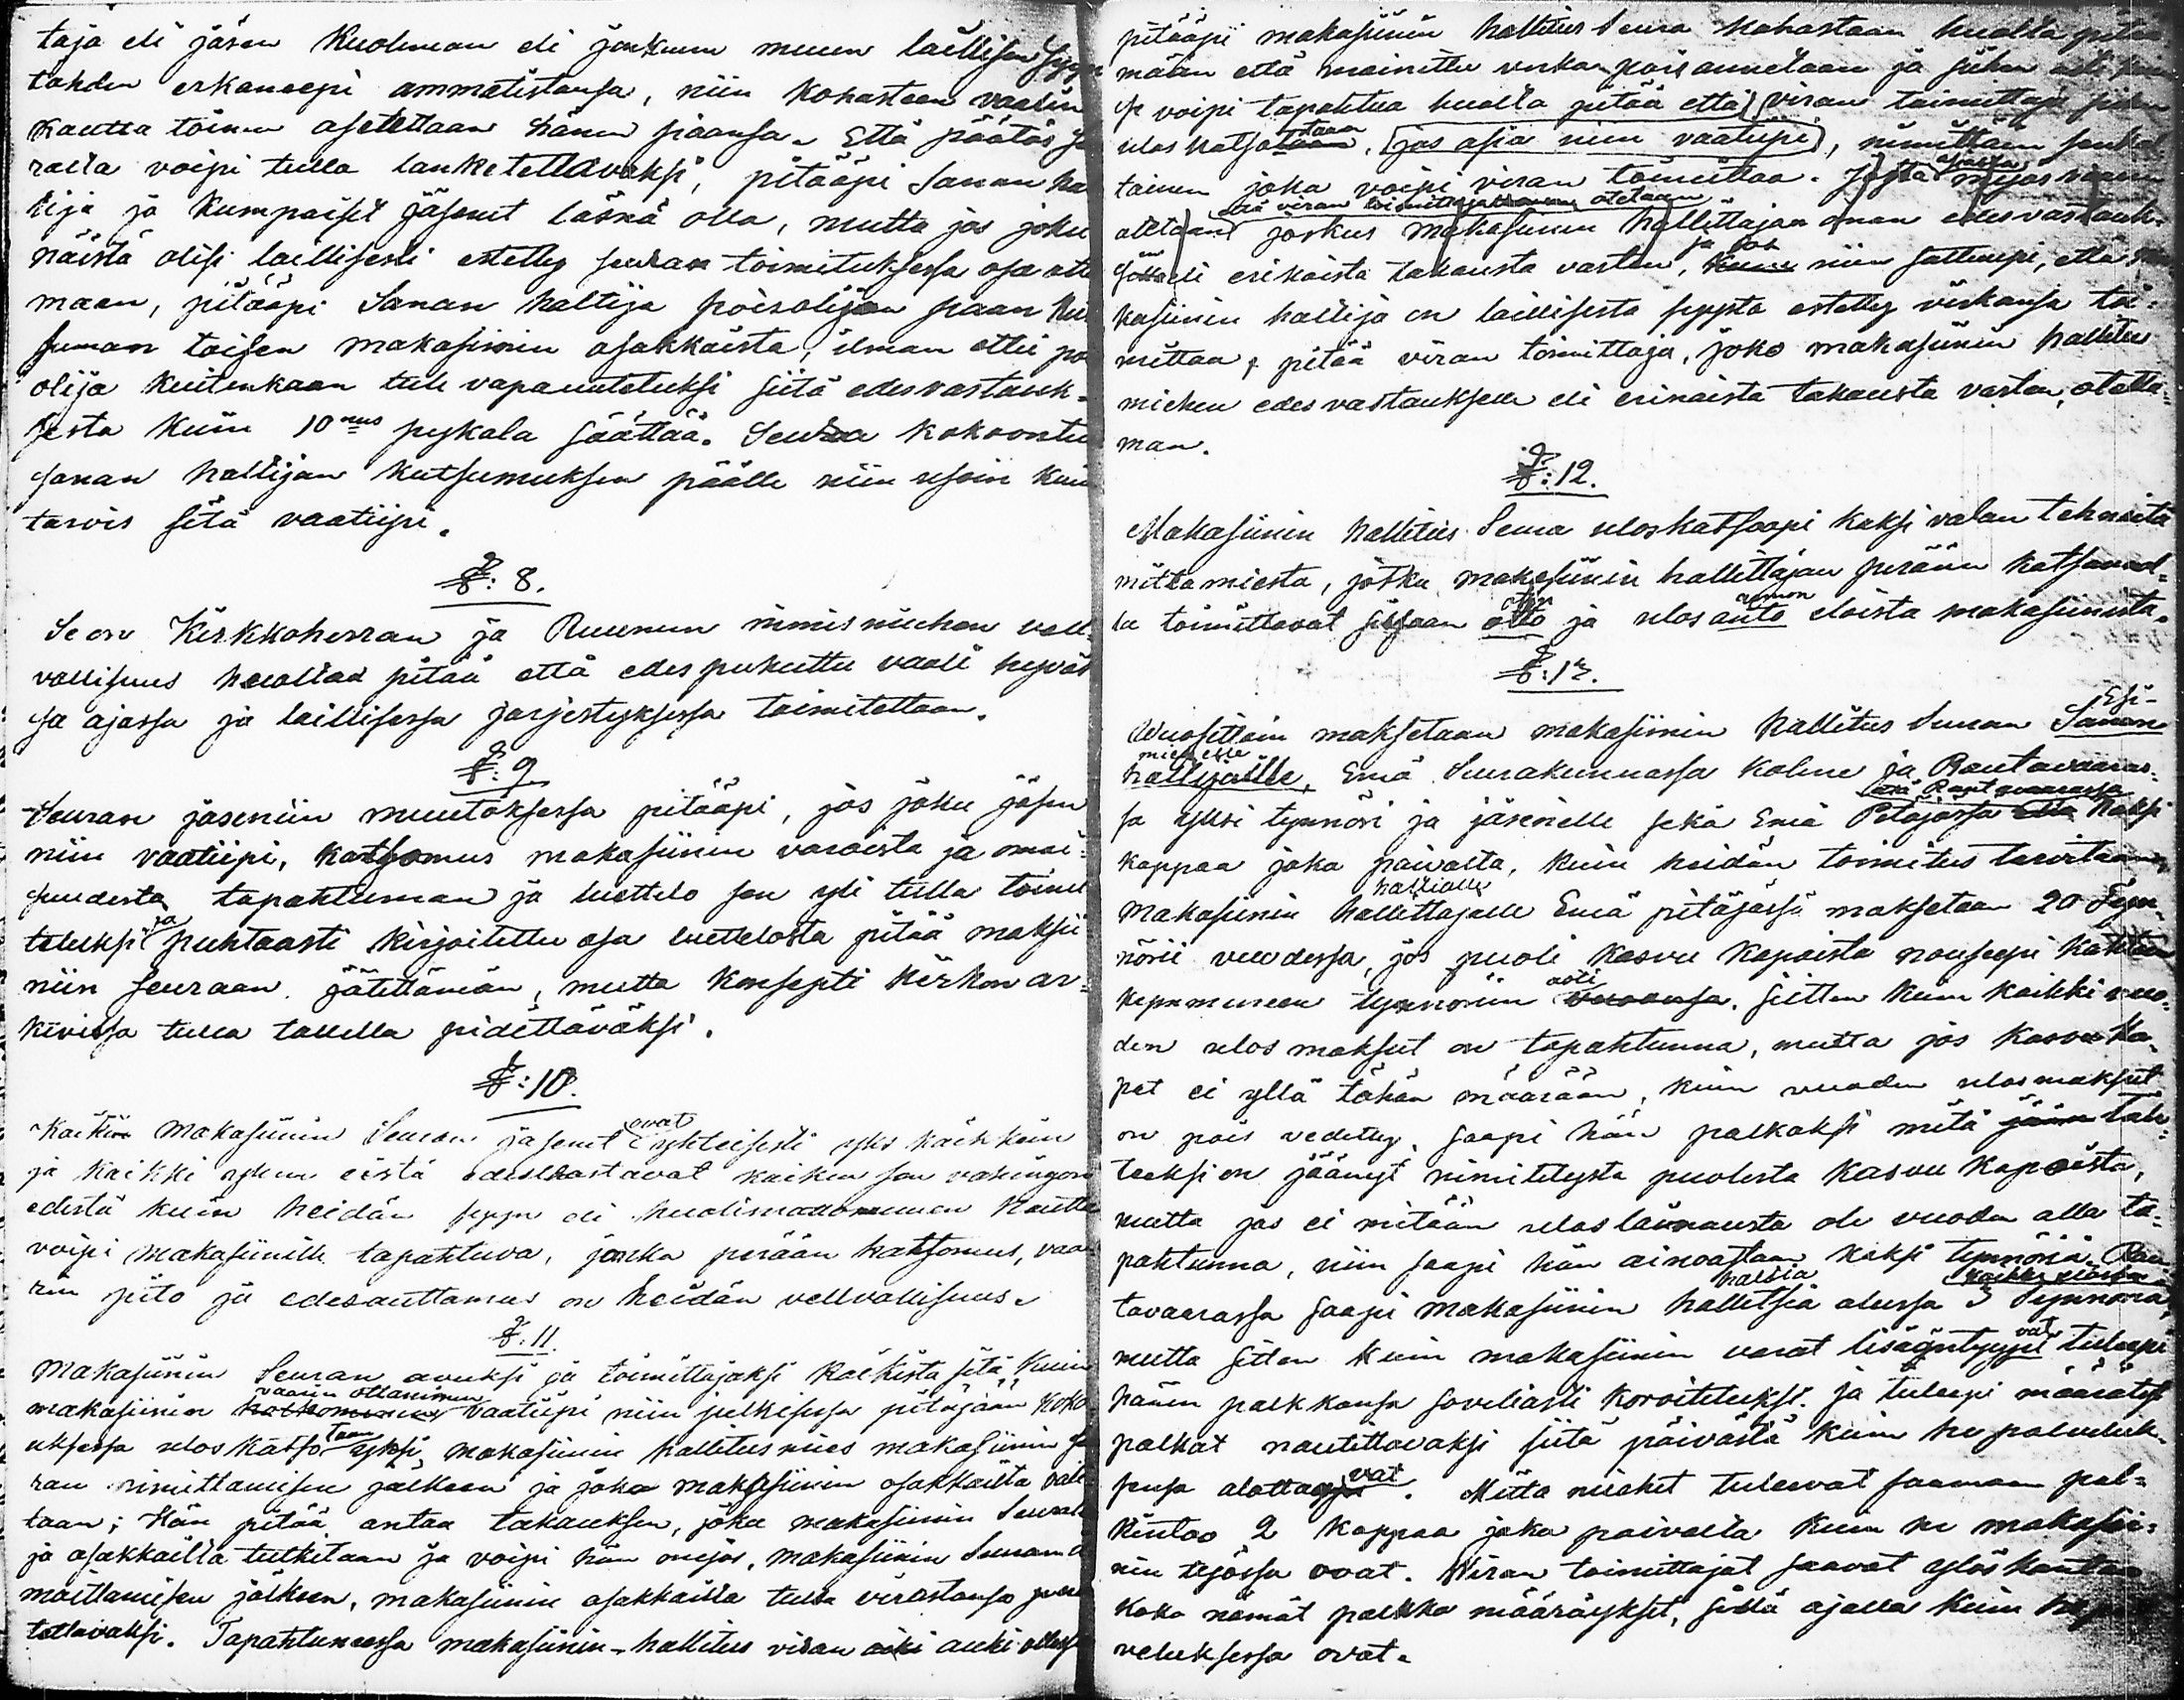 taja eli jäsen Kuoleman eli jonkuun muun laillisen syyn
tähden erkaneepi ammatistansa, niin kohastaan vaalin
kautta toinen asetettaan hänen siaansa. Että päätös
ralla voipi tulla lanketettavaksi, pitääpi Sanan hal
tija ja kumpaiset jäsenet läsnä olla, mutta jos joku
näistä olisi laillisesti estetty seuran toimituksessa osa otta
maan, pitääpi Sanan haltija poisolijan siaan kut
suman toisen makasiinin osakkaista, ilman ettei pois
olija kuitenkaan tule vapauteteuksi siitä edesvastauk-
sesta kuin 10nus pykala säättää. Seura kokoontuu
sanan haltijan kutsumuksen päälle niin usein kuin
tarvis sitä vaatiipi.
§: 8.
Se on Kirkkoherran ja Ruunun nimismiehen vell-
vollisuus huollaa pitää että edespukuttu vaali hyväs
sä ajassa ja laillisessa jarjestyksessä toimitettaan.
§: 9
Seuran jäseniin muutoksessa pitääpi, jos joku jäsen
niin vaatiipi, katsomus makasiinin varoista ja omai-
suudesta tapahtuman ja luettelo sen yli tulla toimi
tetuksi ja puhtaasti kirjoitettu osa luettelosta pitää maksii
niin Seuraan jätettämän, mutta konsepti kirkon ar-
kivissa tulla tallella pidettäväksi.
§: 10.
Kaikki Makasiinin Seuran jäsenet ovat yhteisesti yks kaikkein
ja kaikki yhen eistä edesvastavat kaiken sen vahingon
edestä kuin heidän syyn eli huolimattomuuen kautta
voipi makasiinille tapahtuva, jonka perään katsomus, vaa
rin pito ja edesauttamus on heidän vellvollisuus.
§. 11.
Makasiinin Seuran avuksi ja toimittajaksi kaikista sitä kuin
makasiinin vaarin ottaminen vaatiipi niin julkisessa pitäjään koko
uksessa ulos katsotaan yksi makasiinin hallitusmies makasiinin Seu
ran nimittämisen jälkeen ja joka makasiinin osakkailta vali
taan; Hän pitää antaa takauksen, joka makasiinin Seuralta
ja osakkailta tutkitaan ja voipi hän myös, makasiinin Seuran a
moittamisen jälkeen, makasiinin osakkailta tulla virastansa pois
tettavaksi. Tapahtuneessa makasiinin-hallitus viran auki ollessa
pitääpi makasiinin hallitus Seura kohastaan huolta pitää
mään että mainittu virka pois annetaan ja siihen asti kuin
se voipi tapahtua huolta pitää että viran toimittaja siihen
ulos katsotaan, jos asia niin vaatiipi, nimittäin jonkun
toinen joka voipi viran toimittaa. Josta asiasta myös vaarin
että viran toimittajaksensa otetaan
otetaan joskus makasiinin hallittajan oman edesvastauk-
sella eli erikoista takausta vasten, ja jos niin sattuupi, että ma
kasiinin haltija on laillisesta syystä estetty virkansa toi-
mittaa, pitää viran toimittaja, joko makasiinin hallitus
miehen edesvastauksella eli erinaista takausta vasten, otetta-
man.
§: 12.
Makasiinin hallitus Seura uloskatsoapi kaksi valan tehnältä
mittamiestä, jotka makasiinin hallittajan perään katsannol-
la toimittavat sissaan oton ja ulos annon eloista makasiinista.
§: 13.
Vuosittain maksetaan makasiinin hallitus Seuran Esi-
miehelle, Emä Seurakunnassa kolme ja Rautavaaras-
sa yksi tynnöri ja jäsenelle sekä Emä Pitäjässä että Rautavaarassa kaksi
kappaa joka päivältä, kuin heidän toimitus tarvitaan,
haltialle
Makasiinin hallittajalle Emä pitäjässä maksetaan 20 Tyn-
nörii vuodessa, jos puoli kasvu kapoista nouseepi kahteen
kymmeneen tynnöriin asti, sitten kuin kaikki vuo-
den ulos maksut on tapahtunna, mutta jos kasvu ka-
pat ei yllä tähän määrään, kuin vuoden ulosmaksut
on pois vedetty, saapi hän palkaksi mitä tähe-
teeksi on jäänyt nimitetystä puolesta kasvu kapoista,
mutta jos ei mitään uloslainausta ole vuoden alla ta-
pahtunna, niin saapi hän ainoastaan kaksi tynnöriä. Rau
tavaarassa saapi makasiinin haltia alussa 3 Tynnöriä,
mutta sitten kuin makasiinin varat lisäänttyyvät tuleepi
hänen palkkansa soveliasti koroitetuksi. ja tuleepi määrätyt
palkat nautittavaksi siitä päivästä kuin he palveluk-
sensa alottavat. Mitta miehet tulevat saamaan pal-
kintoo 2 Kappaa joka päivältä kuin he makasii-
nin työssä ovat. Viran toimittajat saavat ylöskantaa
koko nämät palkka määräykset, sillä ajalla kuin he pal
veluksessa ovat.